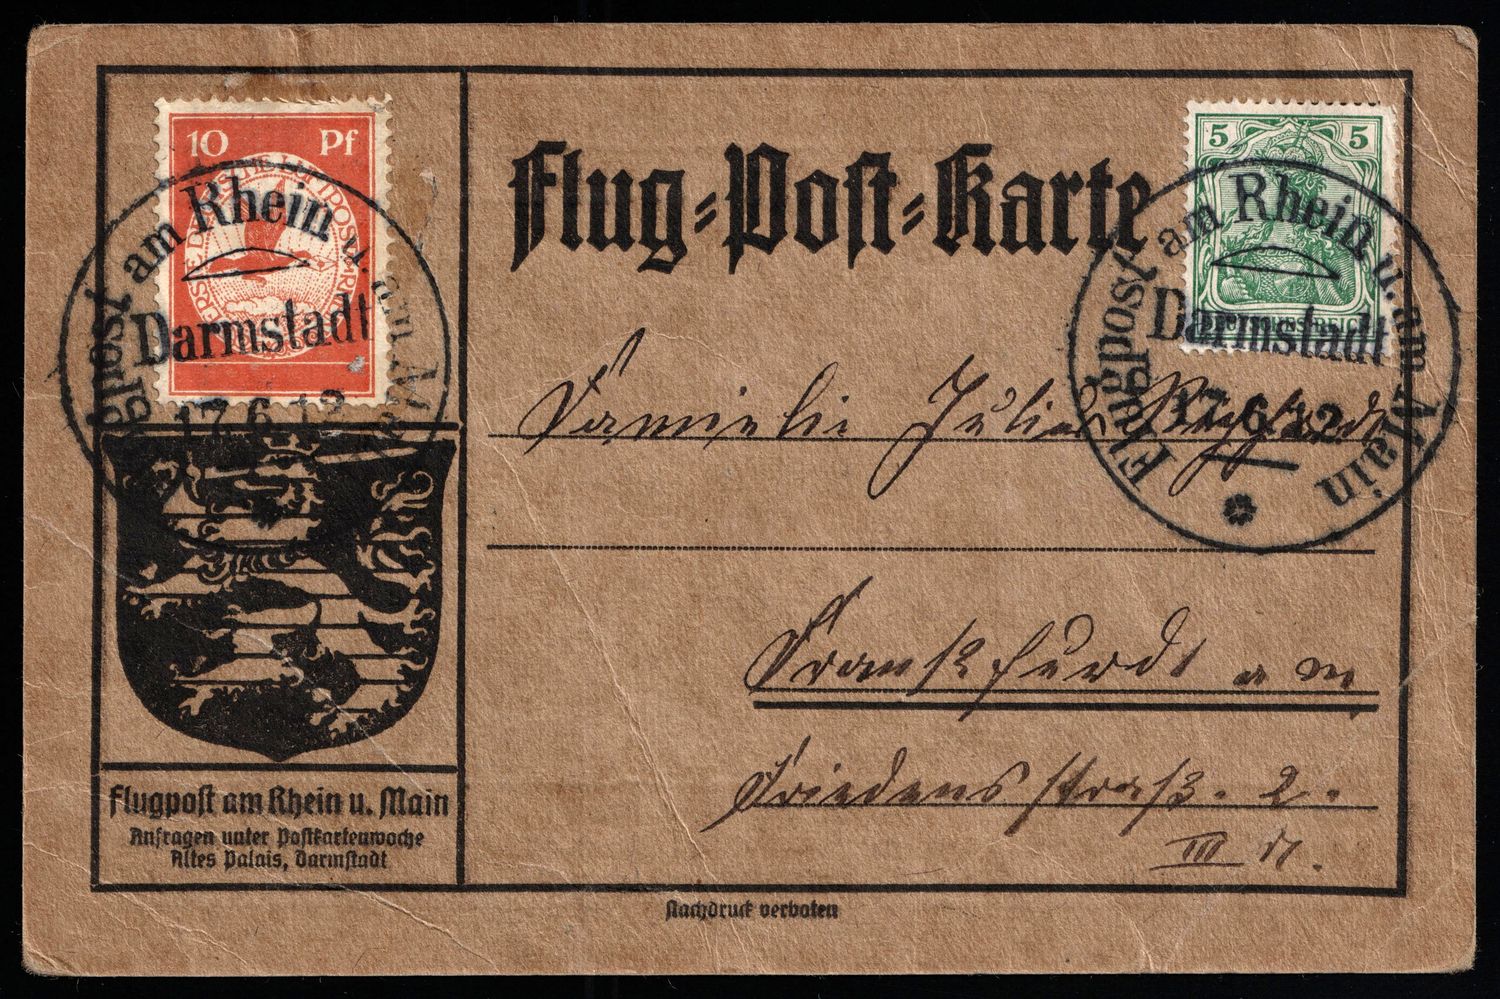 10 Pf
ERSTE DEUTSCHE LUFTPOST AM RHEIN
Flugpost am Rhein u. am Main
Darmstadt
17.6.12
Flug-Post-Karte
5 5
DEUTSCHES REICH
Flugpost am Rhein u. am Main
Darmstadt
17.6.12
Familie Julius
Frankfurdt a M
Friedensstraße. 2.
III
Flugpost am Rhein u. Main
Anfragen unter Postkartenwoche
Altes Palais, Darmstadt
Nachdruck verboten